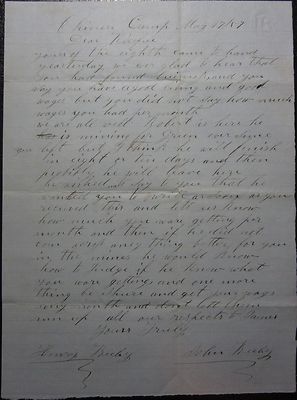 Chinese Camp May 17/59
Dear Nephew
yours of the eighth came to hand
yesterday we are glad to hear that
you had found and you
say you have a good and good
wages but you did not say how much
wages you had per month
we are all well Robert is here he
is mining for Green ever since
you left but I think he will finish
in eight or ten days and then
probibly he will leave here
he wished me to say to you that he
wanted you to write as soon as you
received this and let us know
how much you ware getting per
month and then if he did not
any thing better for you
in the mines he would know
how to Judge if he knew what
you ware getting and one more
thing be shure and get your wages
evry month and dont let them
run up all our respects to James
Yours Truly
Henry John